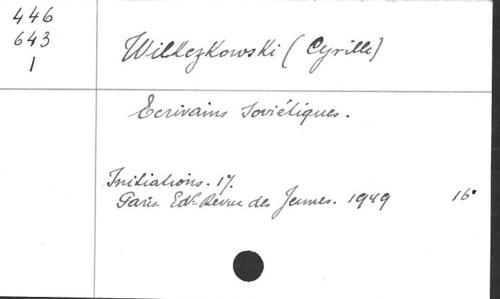 446
643
1
Wilkczkowski (Cyrille)
Ecrivains Soviétiques.
Initiations. 17.
Paris Edt Revue des Jeunes. 1949 16°